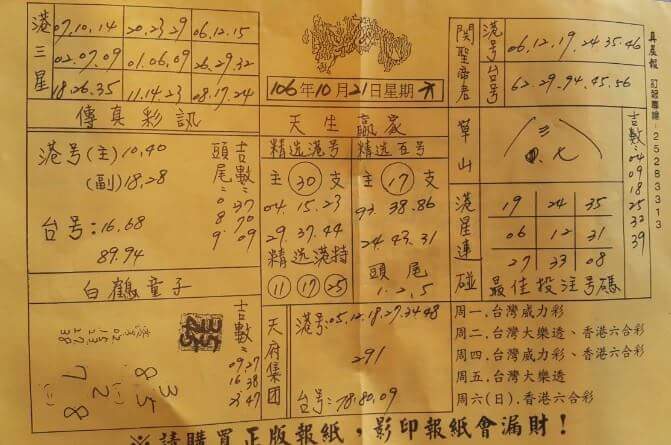 港三星
07,10,14 20,23,29 06,12,15
02,07,09 01,06,09 26,29,32
18,26,35 11,14,23 08,17,24
106年10月21日星期六
関聖帝君
港号 06,12,19,24,35,46
台号 62,29,94,45,56
真晨報 訂報專線:25283313
傳真彩訊
港号(主)10,40
(副)18,28
台号:16,68
89,94
吉數: 37 70 09
頭尾: 0 8 9
天生贏家
精选港号 精选互号
主 30 支 主 17 支
04,15,23 93,38,86
29,37,44 24,43,31
精选港特 頭尾
11 17 25 1,2,5
單山
三
七
吉數: 04 09 18 25 32 39
港星連碰
19 24 35
06 12 31
27 33 08
最佳投注号碼
白鶴童子
吉數: 09,27 16,38 25,47
天府集团
港号:05,12,18,27,34,48
291
台号:78,80,09
周一.台灣威力彩
周二.台灣大樂透、香港六合彩
周四.台灣威力彩、香港六合彩
周五.台灣大樂透
周六(日).香港六合彩
※請購買正版報紙,影印報紙會漏財!